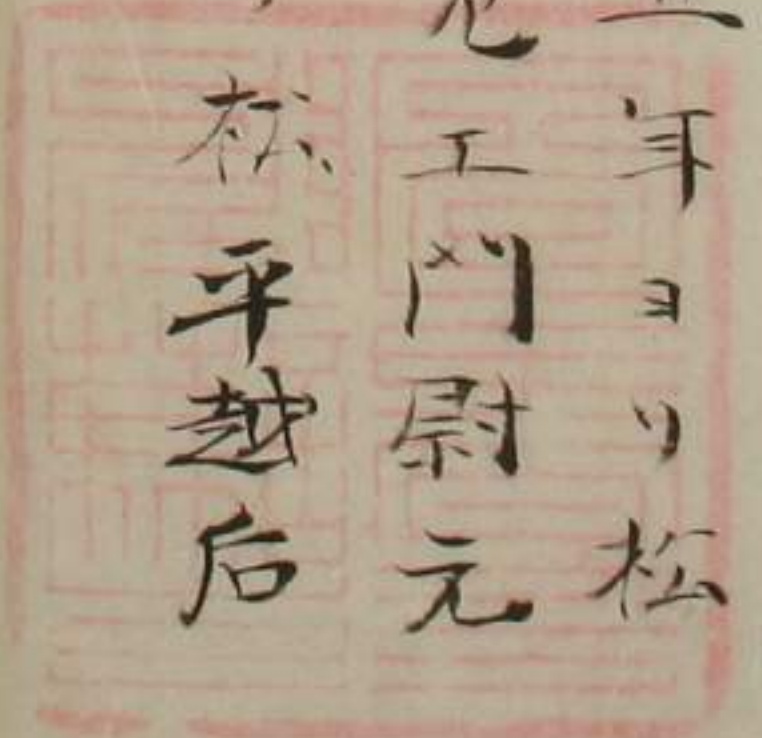 年ヨリ松
エ門尉元
松平越后